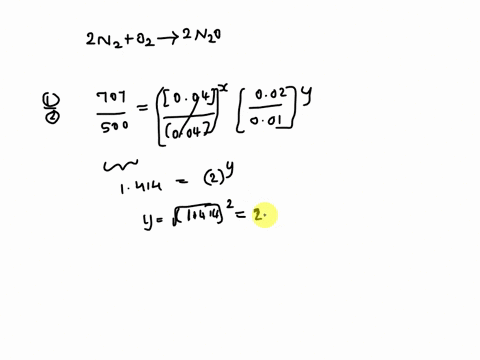 2N₂+O₂→2N₂O
①/② 707/500 = [[0.04]/(0.04)]^x [0.02/0.01]^y
1.414 = (2)^y
y = √(1.414)^2 = 2.